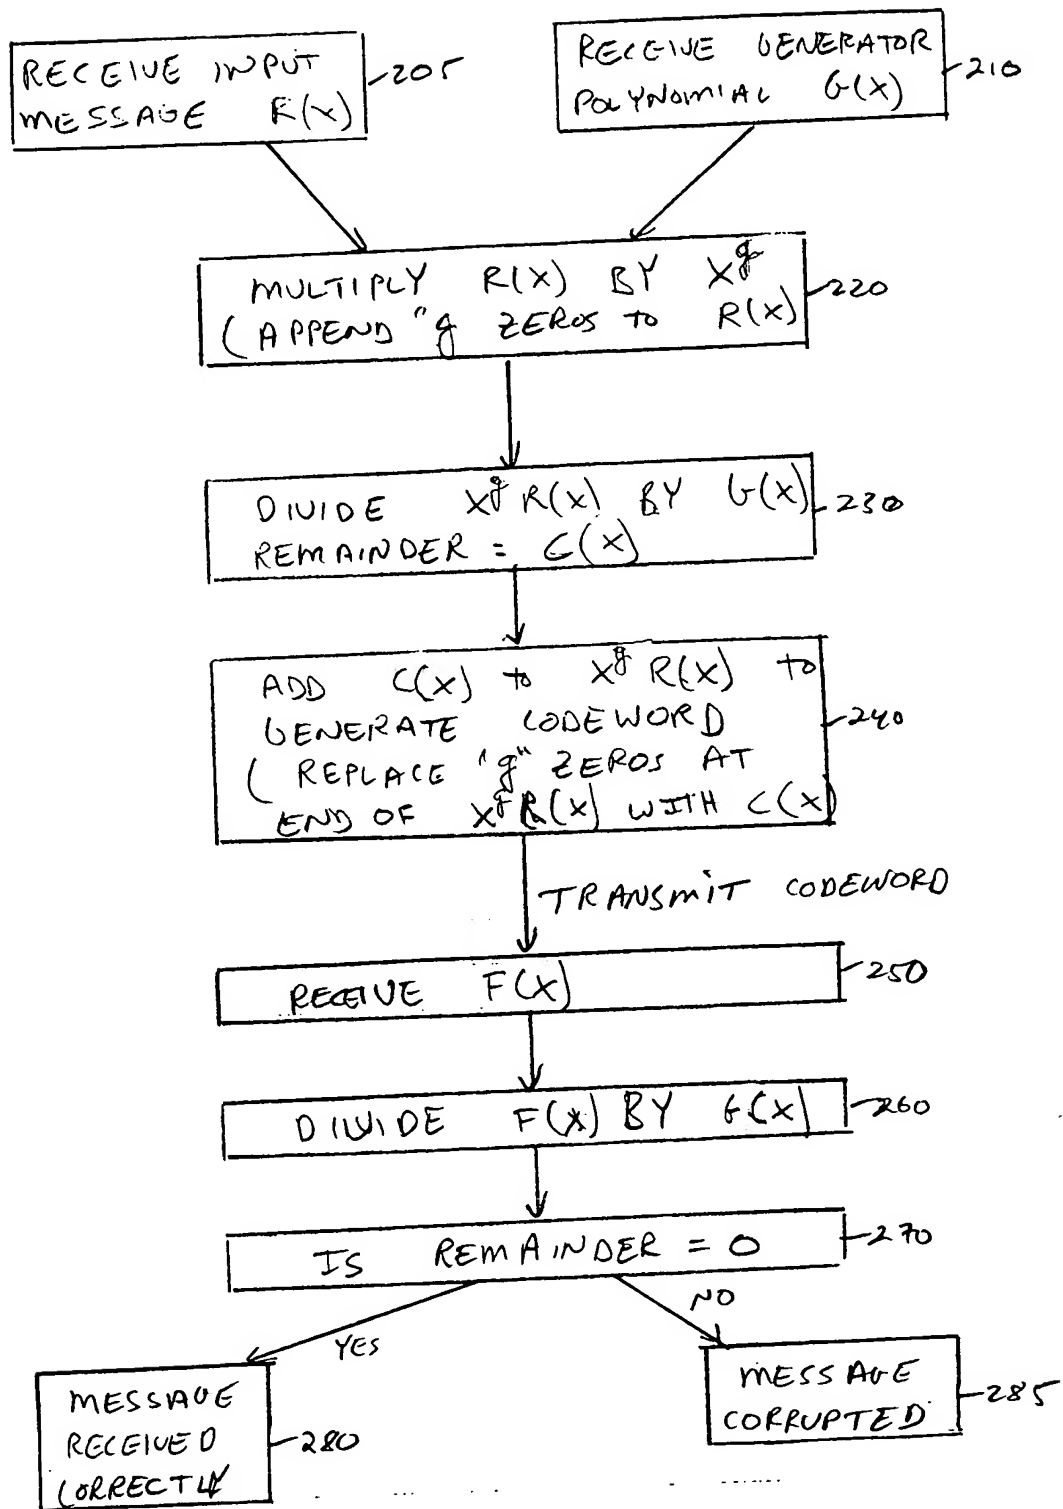 RECEIVE INPUT
MESSAGE R(X)
205
RECEIVE GENERATOR
POLYNOMIAL G(X)
210
MULTIPLY R(X) BY X^g
(APPEND "g ZEROS to R(X)
220
DIVIDE X^g R(X) BY G(X)
REMAINDER = C(X)
230
ADD C(X) to X^g R(X) to
GENERATE CODEWORD
( REPLACE "g" ZEROS AT
END OF X^g R(X) WITH C(X)
240
TRANSMIT CODEWORD
RECEIVE F(X)
250
DIVIDE F(X) BY G(X)
260
IS REMAINDER = 0
270
YES
NO
MESSAGE
RECEIVED
CORRECTLY
280
MESSAGE
CORRUPTED
285